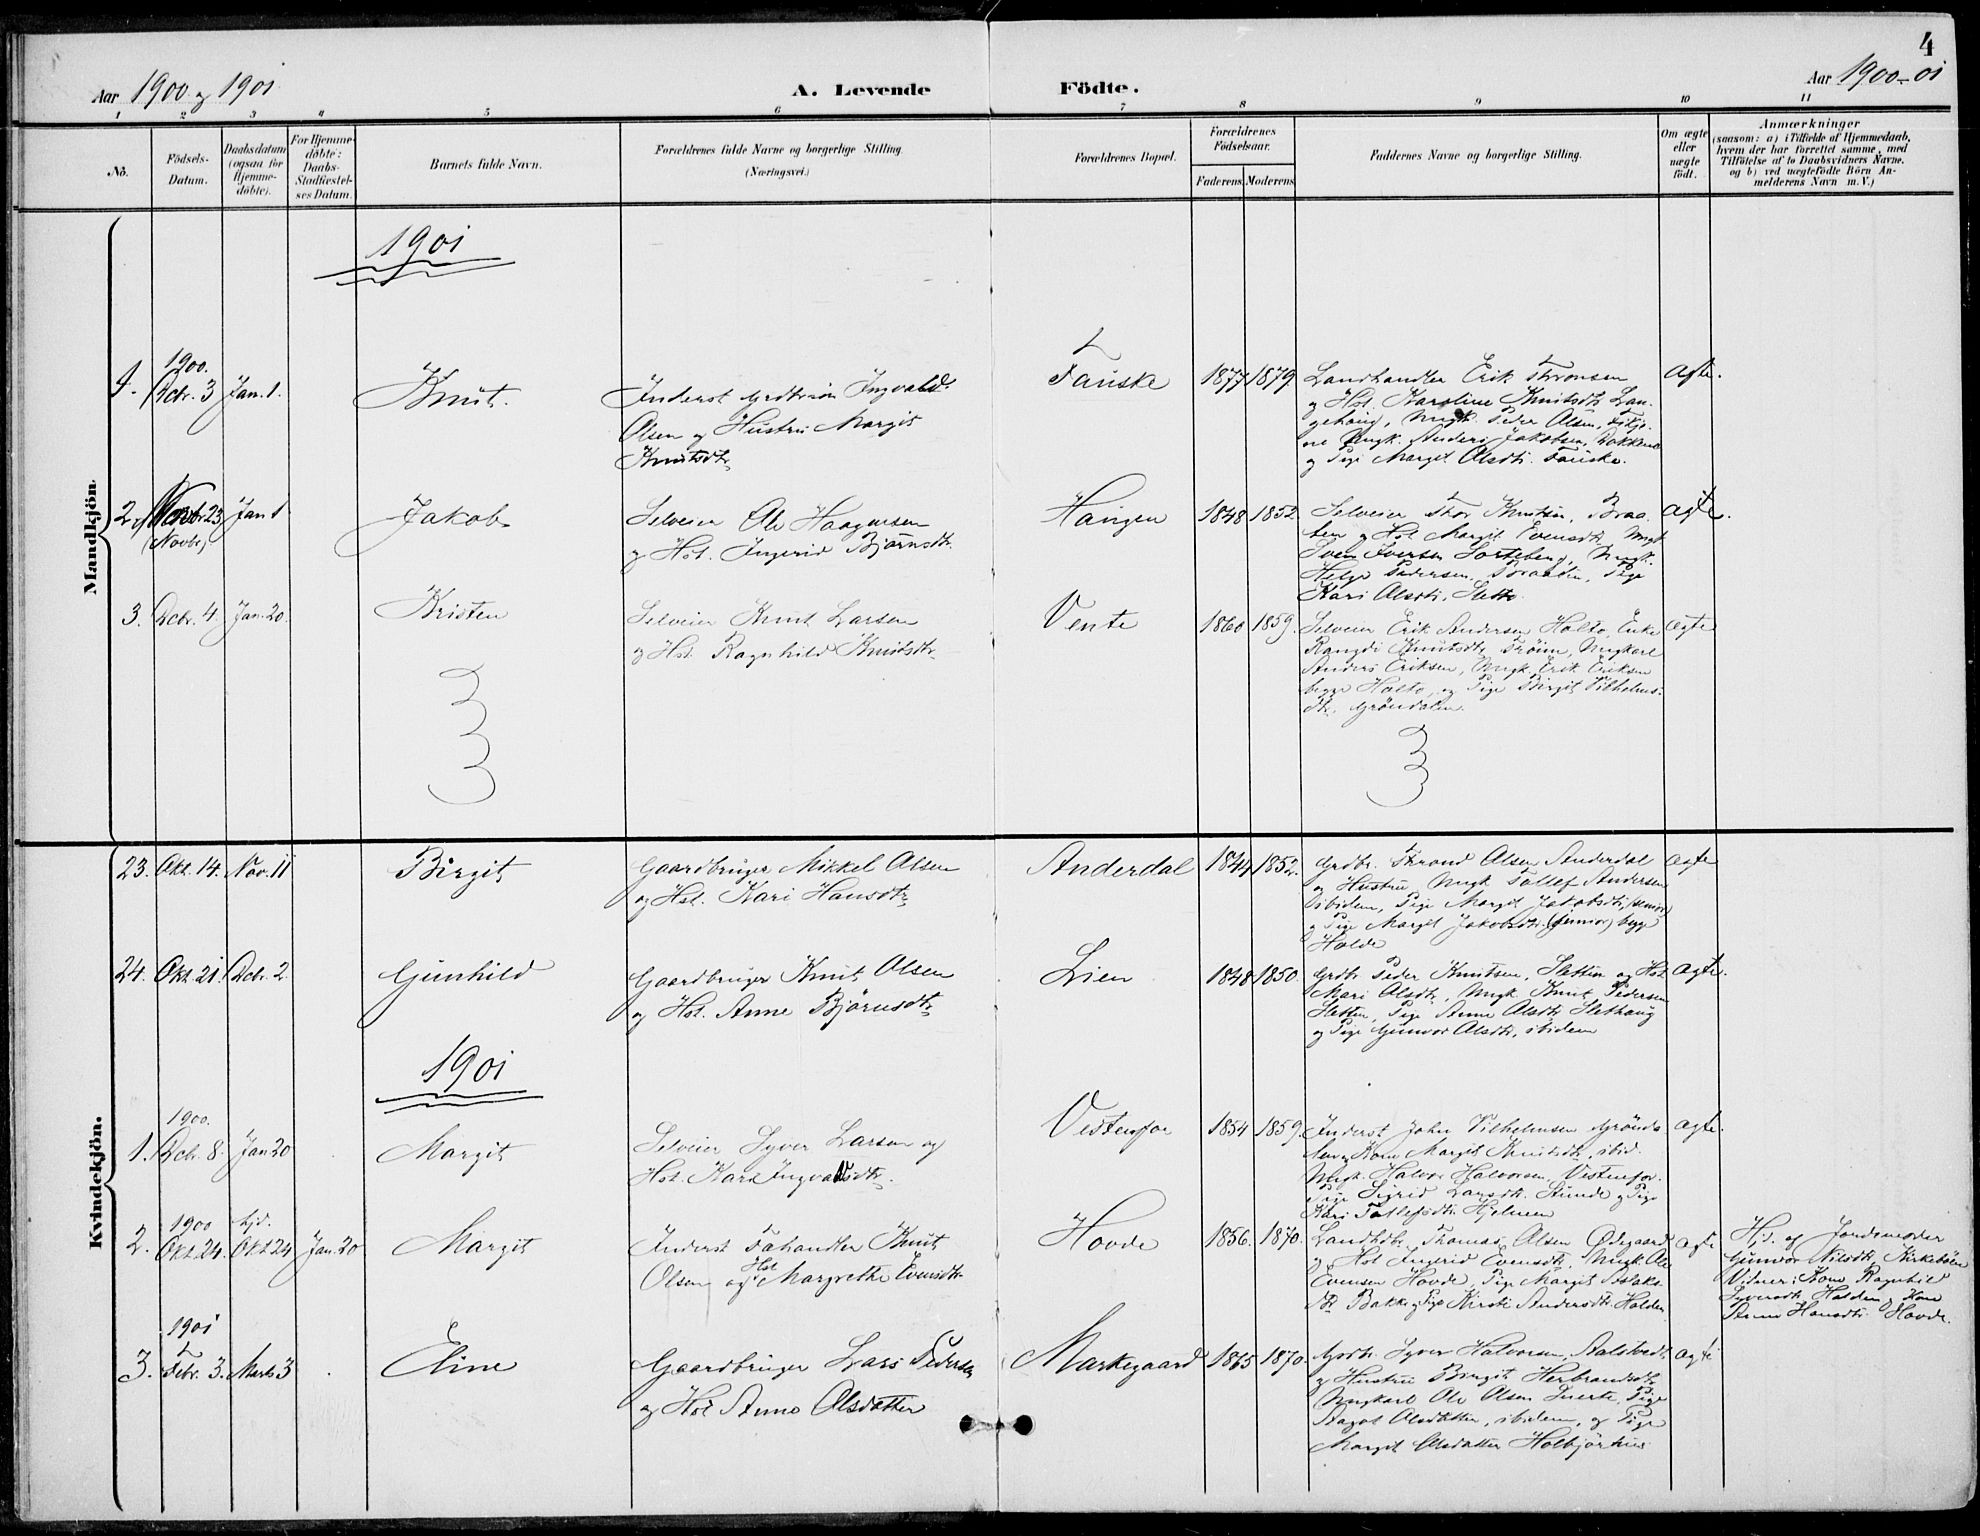 4
Aar 1900 og 1901
A. Levende
Födte.
Aar 1900-01
1 2 3 4 5 6 7 8 9 10 11
No.
Födsels-
Datum.
Daabsdatum
(ogsaa for
Hjemme-
döbte).
For Hjemme-
döbte:
Daabs-
Stadfæstel-
ses Datum.
Barnets fulde Navn.
Forældrenes fulde Navne og borgerlige Stilling
(Næringsvei.)
Forældrenes Bopæl.
Forældrenes
Födselsaar.
Faderens
Moderens
Faddernes Navne og borgerlige Stilling.
Om ægte
eller
uægte
födt.
Anmærkninger
(saasom: a) i Tilfælde af Hjemmedaab,
hvem der har forrettet samme, med
Tilföielse af to Daabsvidners Navne.
og b) ved uægtefödte Börn An-
melderens Navn m. V.)
Mandkjön.
1901
1.
1900.
Dcbr. 3
Jan. 1.
Knut.
Inderst Grdbrsön Ingvald
Olsen og Hustru Margit
Knutsdtr
Fauske
1877
1879
Landhandler Erik Thronsen
og Hst. Karoline Knutsdtr Lan-
gehaug, Ungk. Peder Olsen,
Ungk. Anders Jakobsen, Dokken
og Pige Margit Olsdtr. Fauske.
Ægte.
2.
Novbr. 23
(Novbr).
Jan 1
Jakob
Selveier Ole Haagensen
og Hst. Ingerid Björnsdtr.
Haugen
1848
1852
Selveier Thor Knutsen, Braa-
ten og Hst Margit Evensdtr, Ungk
Sven Iversen Sorteberg, Ungk.
Helge Pedersen Braaten, Pige
Kari Olsdtr. Sletto
Ægte.
3.
Dcbr. 4
Jan. 20.
Kristen
Selveier Knut Larsen
og Hst. Ragnhild Knutsdtr
Vente
1860
1859.
Selveier Erik Andersen Holto, Enke
Rangdi Knutsdtr Tröim, Ungkarl
Anders Eriksen, Ungk. Erik Eriksen
begge Holto, og Pige Birgit Vilhelms-
dtr. Gröndalen.
Ægte
Kvindekjön.
23.
Okt. 14.
Nov. 11
Birgit
Gaardbruger Mikkel Olsen
og Hst. Kari Hansdtr
Anderdal
1844
1852.
Grdbr. Thrond Olsen Anderdal
og Hustru Ungk Tollef Andersen
ibidem, Pige Margit Jakobsdtr. (senior)
og Pige Margit Jakobsdtr. (junior) begge
Holde
Ægte
24.
Okt. 21.
Dcbr. 2
Gunhild
Gaardbruger Knut Olsen
og Hst. Anne Björnsdtr
Lien
1848
1850.
Grdbr Peder Knutsen, Sletten og Hst
Mari Olsdtr, Ungk. Knut Pedersen
Sletten, Pige Anne Olsdtr Slethaug
og Pige Gunvor Olsdtr, ibidem
Ægte.
1901
1.
1900.
Dcbr. 8.
Jan 20
Margit
Selveier Syver Larsen og
Hst. Kari Ingvaldsdtr.
Vestenfor
1854
1859.
Inderst John Vilhelmsen Grönda-
len og Kone Margit Knutsdtr, ibid.
Ungk. Halvor Halvorsen, Vestenfor.
Pige Sigrid Larsdtr. Stunde og Pige
Kari Tollefsdtr. Hjelmen
Ægte.
2.
1900
Okt. 24.
hjd.
Okt 24
Jan. 20
Margit
Inderst Fæhandler Knut
Olsen og Hst Margrethe Evensdtr
Hovde
1856.
1870.
Landhdlr. Thomas Olsen Ödegaard
og Hst Ingerid Evensdtr, Ungk. Ole
Evensen Hovde, Pige Margit Aslaks-
dtr Bakke og Pige Kirsti Andersdtr. Holden
Ægte
Hjd. af Jordemoder
Gunvor Nilsdtr, Kirkeböen
Vidner: Kone Ragnhild
Syversdtr Holden og Kone
Anne Hansdtr. Hovde.
3.
1901
Febr. 3.
Marts 3
Eline
Gaardbruger Lars Pedersen
og Hst Anne Olsdatter
Markegaard
1865
1870.
Grdbr. Syver Halvorsen, Aalstvedt
og Hustru Birgit Herbrandsdtr
Ungkarl Ole Olsen Snerte, Pige
Aagot Olsdatter, ibidem, og Pige
Margit Olsdatter Holbjörhus
Ægte